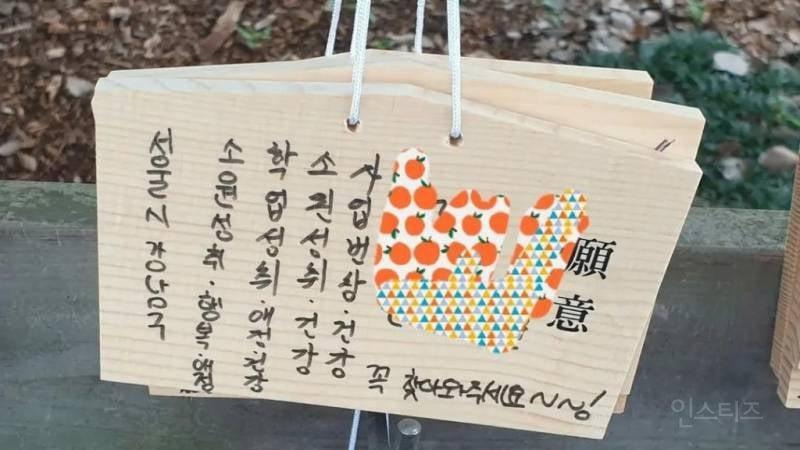 願意
사업번창·건강
소원성취·건강
학업성취·애정·건강
소원성취·행복·애정
서울시 강남구
꼭 찾아와주세요~~!
인스티즈